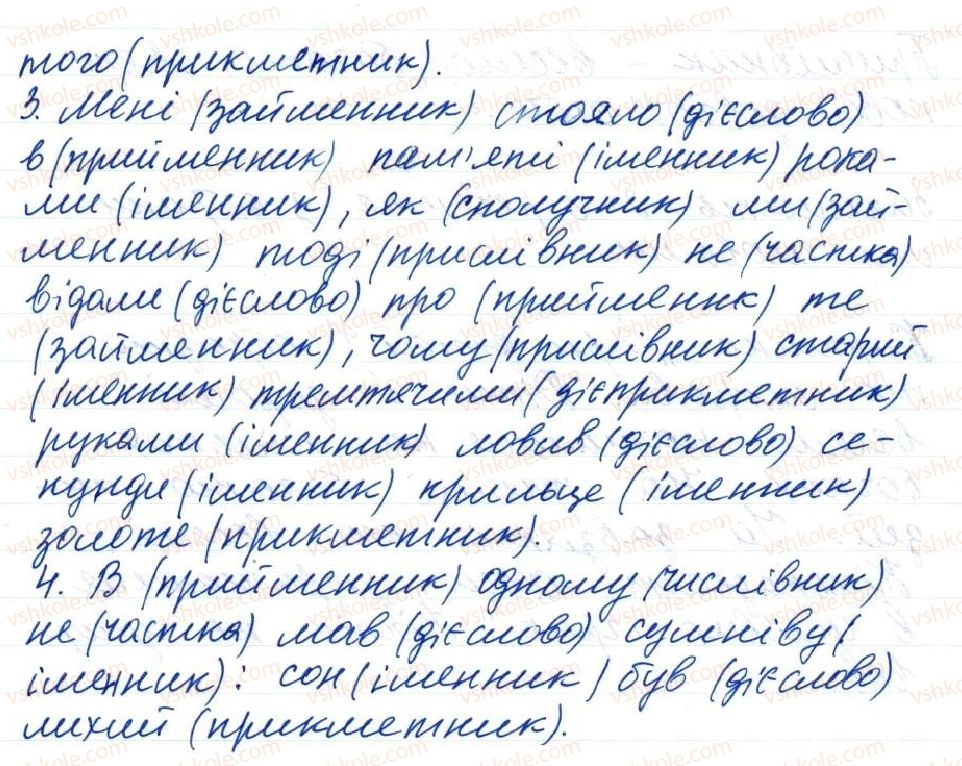 того (прикметник).
3. Мені (займенник) стояло (дієслово)
в (прийменник) пам'яті (іменник) рока-
ми (іменник), як (сполучник) ми (зай-
менник) тоді (прислівник) не (частка)
відали (дієслово) про (прийменик) те
(займенник), чому (прислівник) старий
(іменник) тремтячими (дієприкметник)
руками (іменник) ловив (дієслово) се-
кунди (іменник) крильце (іменник)
золоте (прикметник).
4. В (прийменник) одному (числівник)
не (частка) мав (дієслово) сумніву (
іменник): сон (іменник) був (дієслово)
лихий (прикметник).